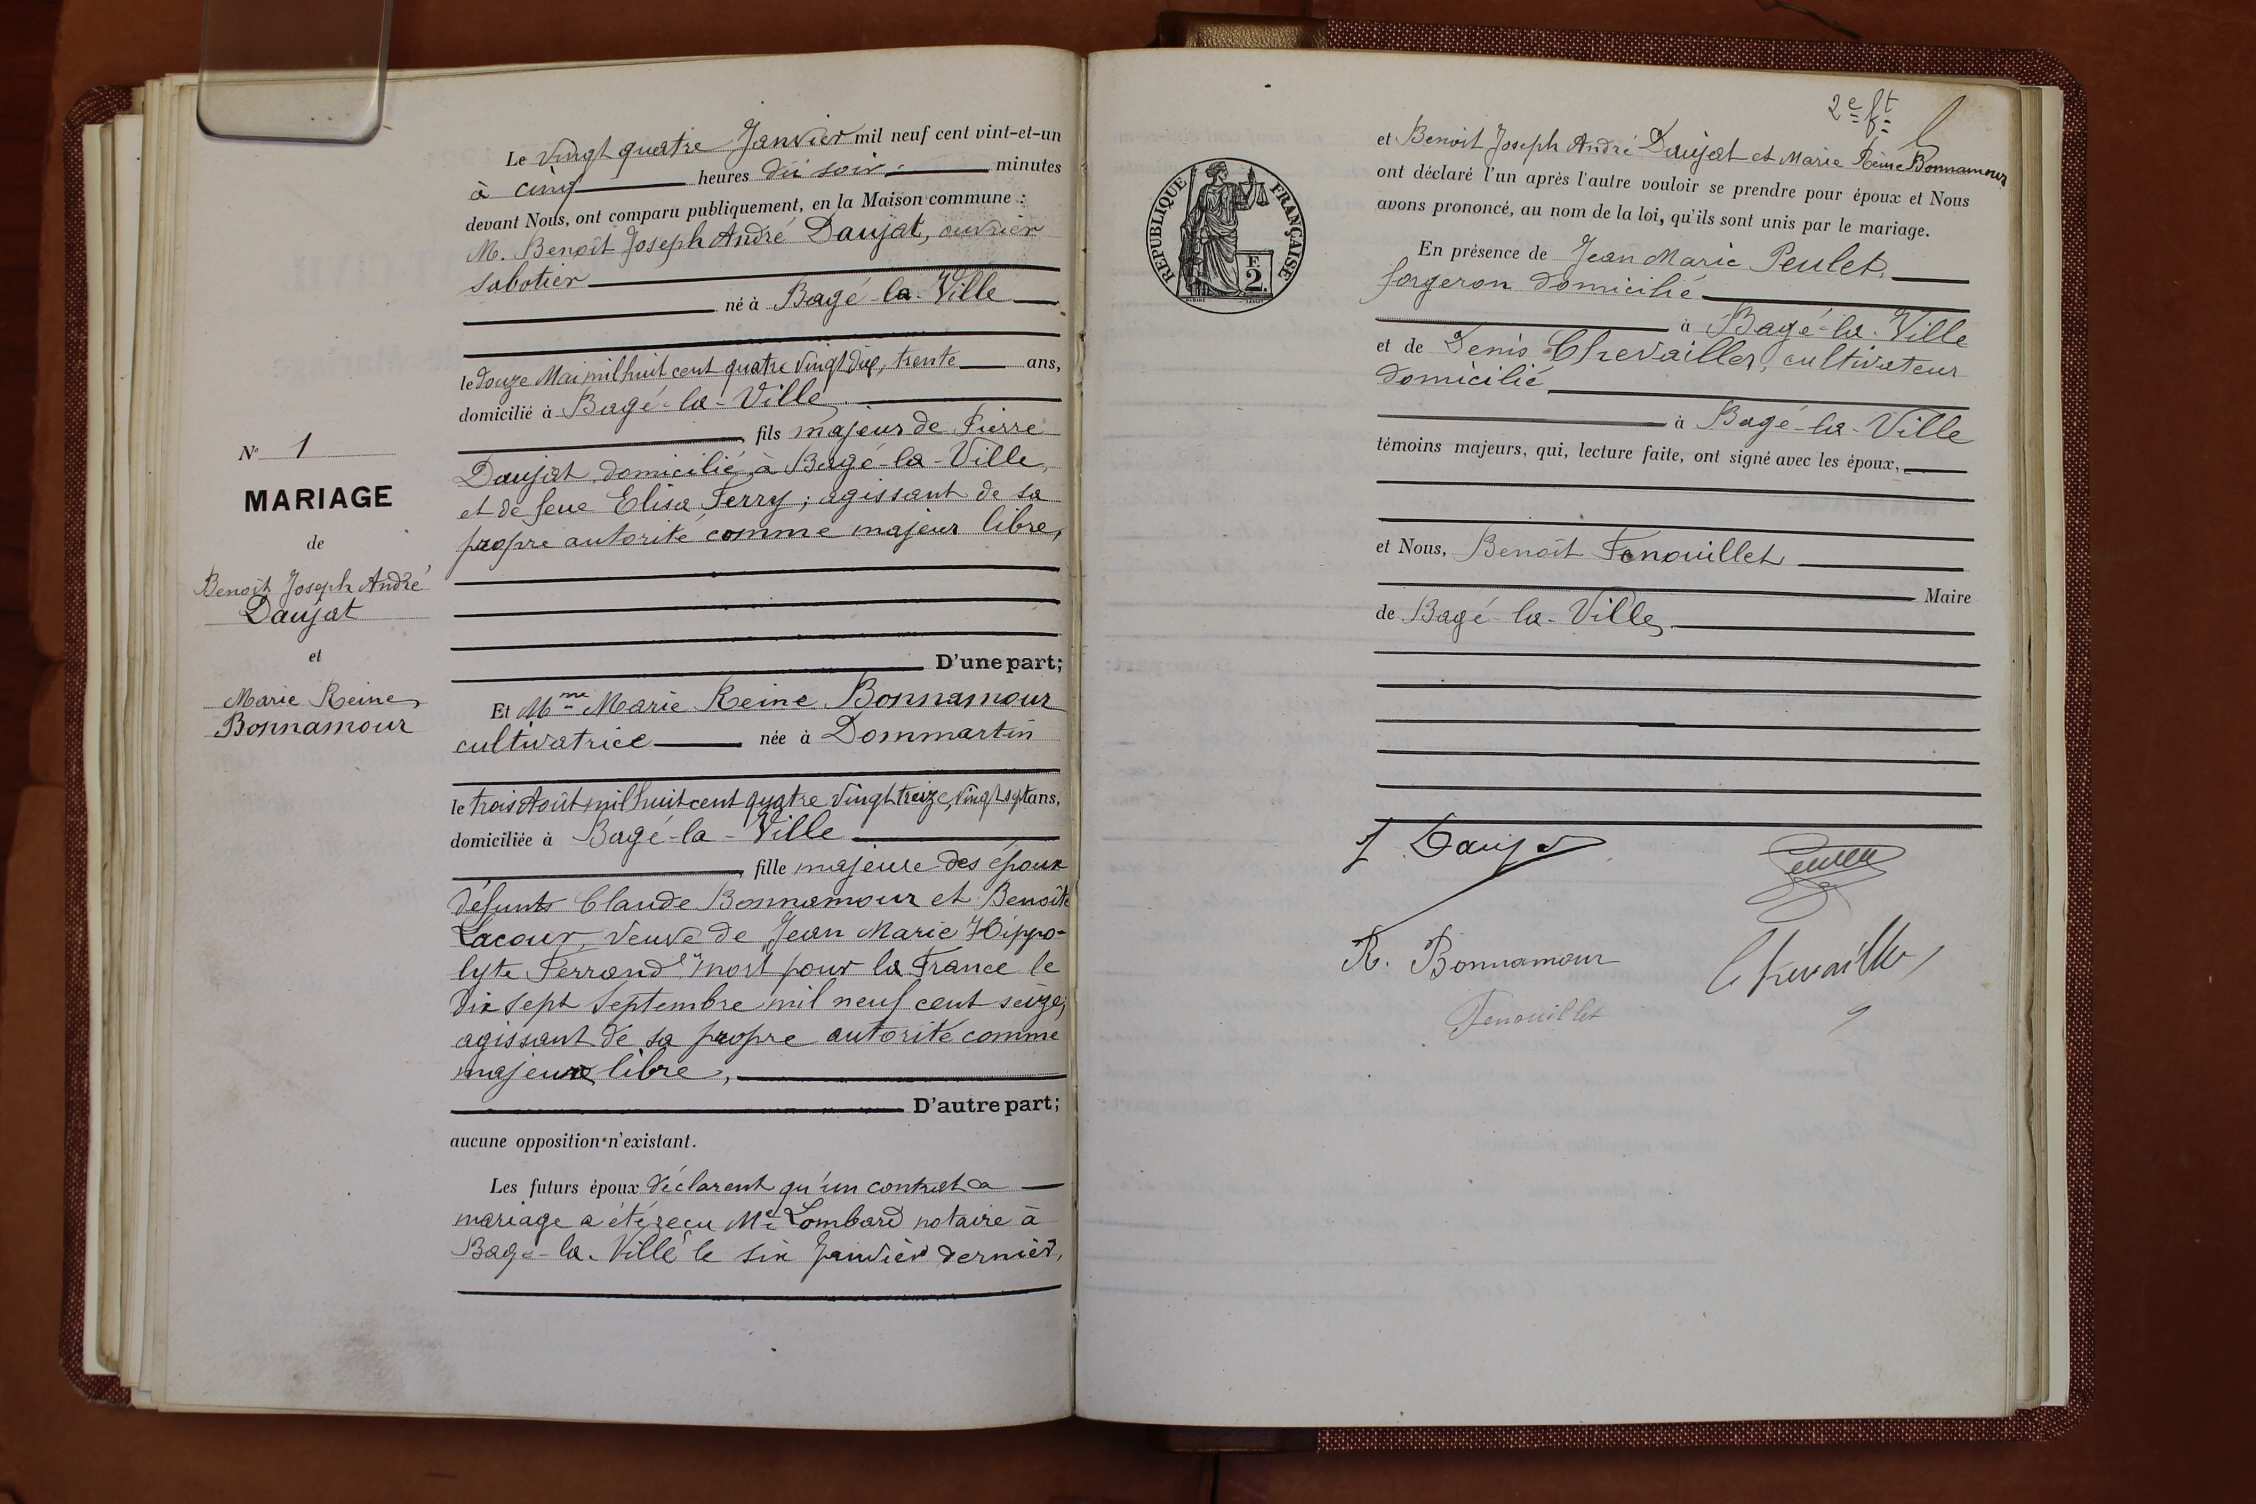 Le vingt quatre Janvier mil neuf cent vint-et-un
à cinq heures du soir minutes
devant Nous, ont comparu publiquement, en la Maison commune :
M. Benoît Joseph André Daujat, ouvrier
sabotier
né à Bagé-la-Ville
le douze Mai mil huit cent quatre vingt dix, trente ans,
domicilié à Bagé-la-Ville
, fils majeur de Pierre
Daujat domicilié à Bagé-la-Ville,
et de feue Elisa Ferry ; agissant de sa
propre autorité comme majeur libre,
D'une part;
Et Mme Marie Reine Bonnamour
cultivatrice née à Dommartin
le trois Août mil huit cent quatre vingt treize, vingt sept ans,
domiciliée à Bagé-la-Ville
, fille majeure des époux
défunts Claude Bonnamour et Benoîte
Lacour, veuve de Jean Marie Hippo-
lyte Ferrand "mort pour la France le
dix sept Septembre mil neuf cent seize;
agissant de sa propre autorité comme
majeure libre,
D'autre part;
aucune opposition n'existant.
Les futurs époux déclarent qu'un contrat a
mariage a été reçu Me Lombard notaire à
Bagé-la-Ville le six Janvier dernier,
N° 1
MARIAGE
de
Benoît Joseph André
Daujat
et
Marie Reine
Bonnamour
2e ft
RÉPUBLIQUE FRANÇAISE
F.
2.
et Benoit Joseph André Daujat et Marie Reine Bonnamour
ont déclaré l'un après l'autre vouloir se prendre pour époux et Nous
avons prononcé, au nom de la loi, qu'ils sont unis par le mariage.
En présence de Jean Marie Peulet,
forgeron domicilié
à Bagé-la-Ville
et de Denis Chevailler, cultivateur
domicilié
à Bagé-la-Ville
témoins majeurs, qui, lecture faite, ont signé avec les époux,
et Nous, Benoît Fenouillet
Maire
de Bagé-la-Ville
J Daujat
Peulet
R. Bonnamour
Chevailler
Fenouillet